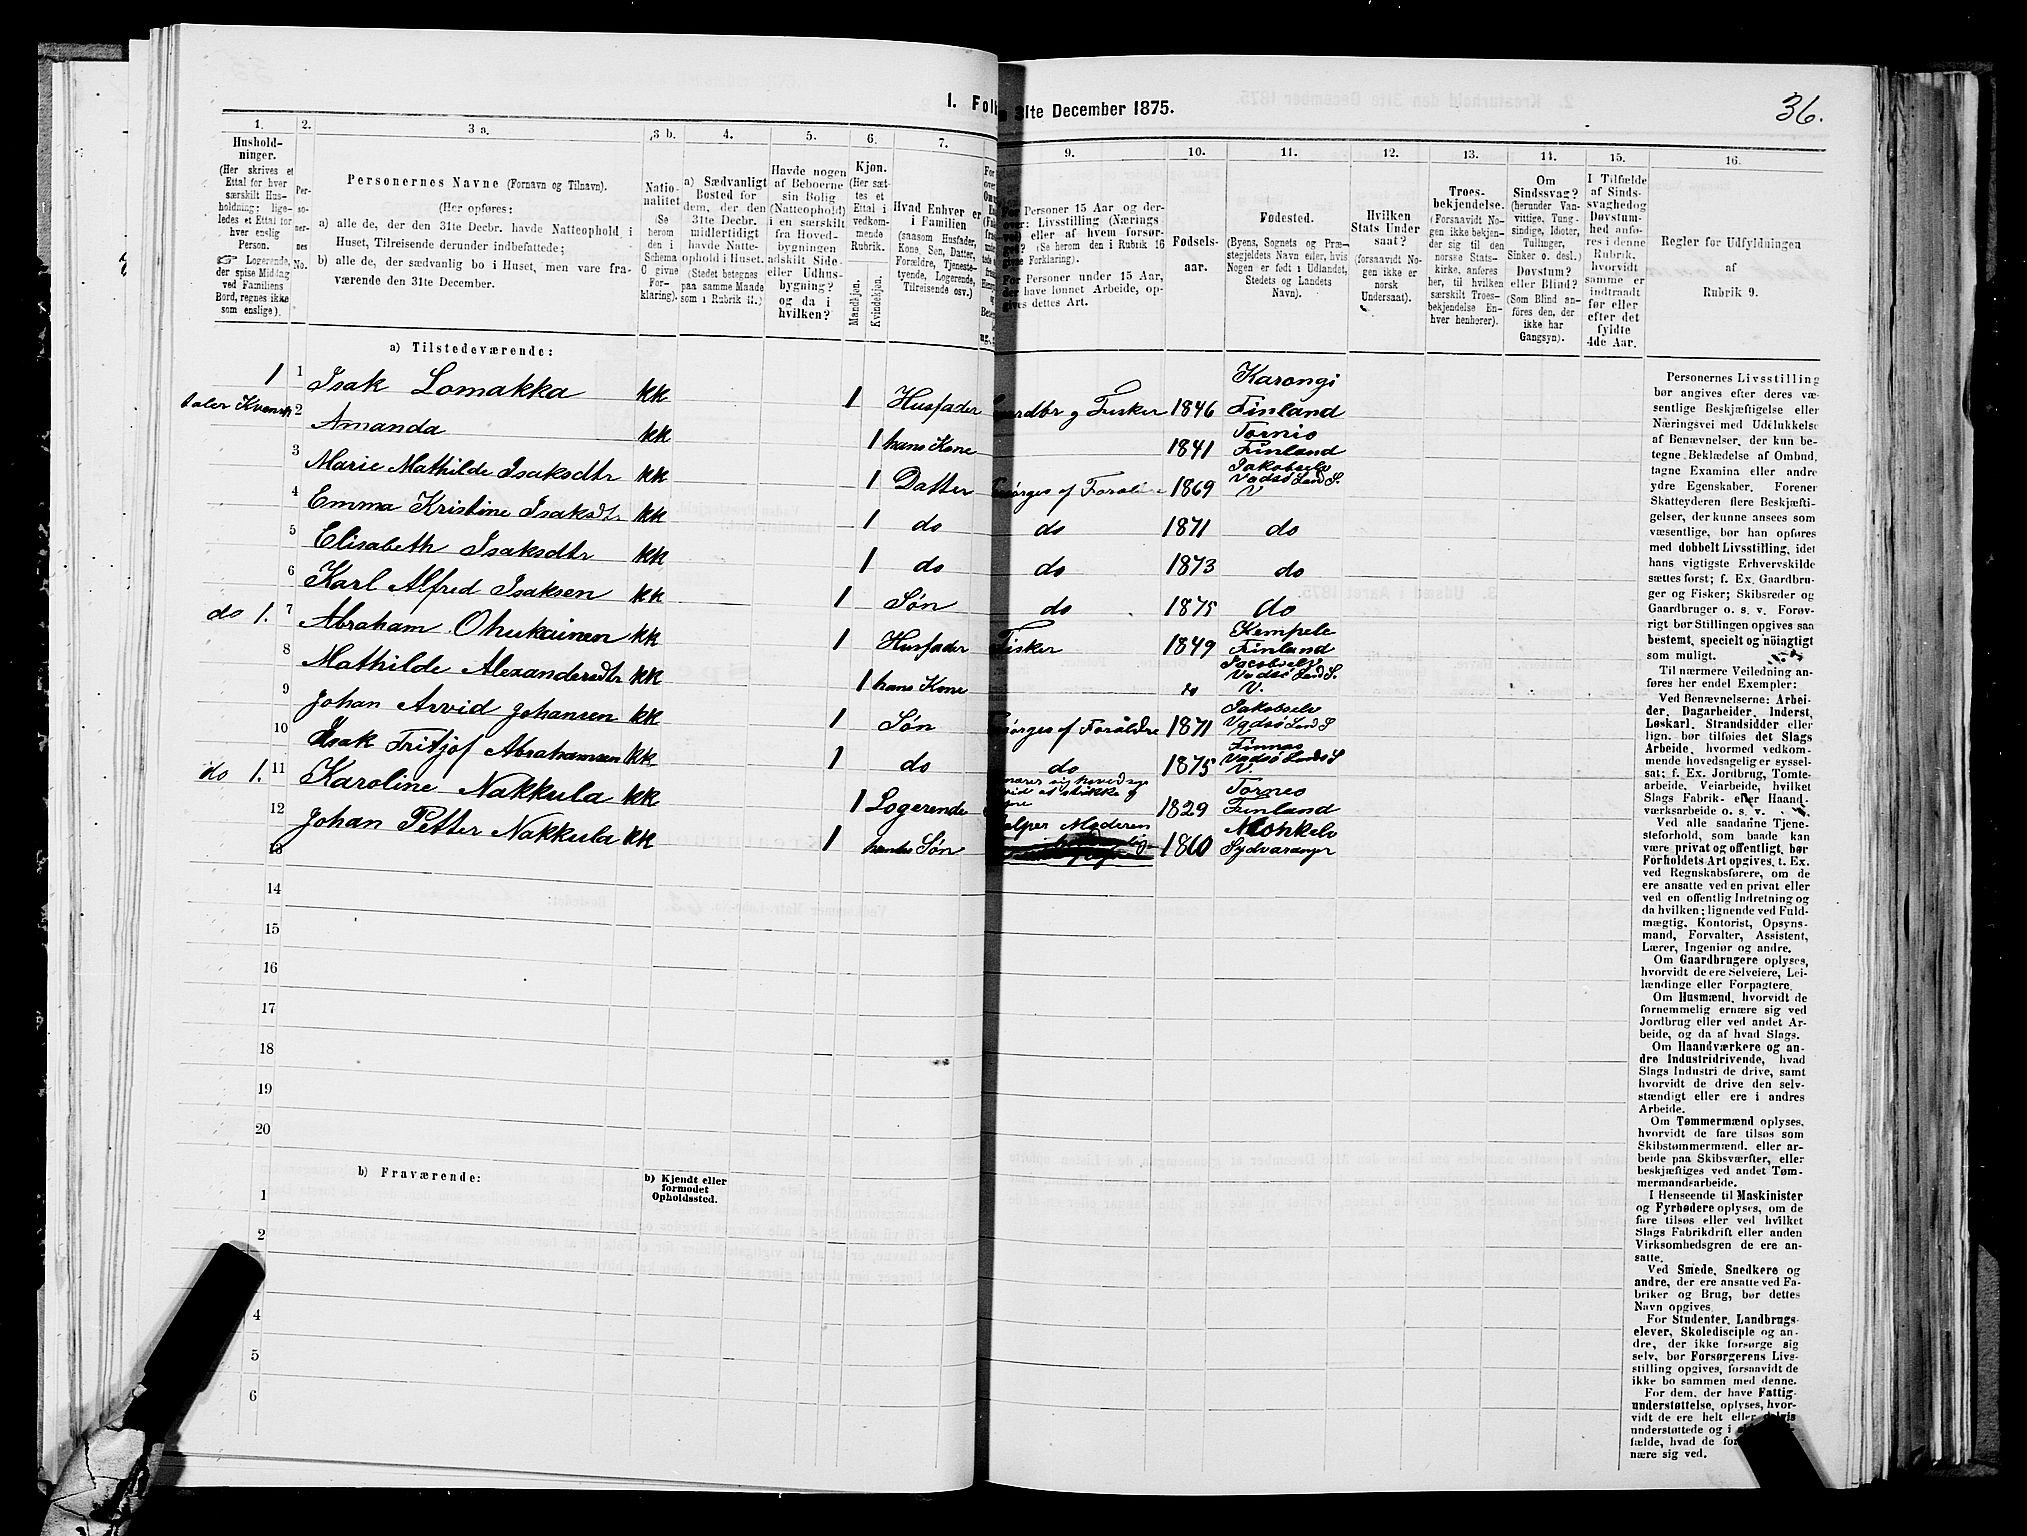 36.
1. Folk
31te December 1875.
1.
2.
3 a.
3 b.
4.
5.
6.
7.
9.
10.
11.
12.
13.
14.
15.
16.
Hushold-
ninger.
(Her skrives et
Ettal for hver
særskilt Hus-
holdning; lige-
ledes et Ettal for
hver enslig
Person.
☞ Logerende,
der spise Middag
ved Familiens
Bord, regnes ikke
som enslige).
Per-
so-
ner-
nes
No.
Personernes Navne (Fornavn og Tilnavn).
(Her opføres:
a) alle de, der den 31te Decbr. havde Natteophold i
Huset, Tilreisende derunder indbefattede;
b) alle de, der sædvanlig bo i Huset, men vare fra-
værende den 31te December.
Natio-
nalitet
(Se
herom
den i
Schema
C givne
For-
klaring).
a) Sædvanligt
Bosted for
dem, der den
31te Decbr.
midlertidigt
havde Natte-
ophold i Huset.
(Stedet betegnes
paa samme Maade
som i Rubrik 11.)
Havde nogen
af Beboerne
sin Bolig
(Natteophold)
i en særskilt
fra Hoved-
bygningen
adskilt Side-
eller Udhus-
bygning?
og da i
hvilken?
Kjøn.
(Her sæt-
tes et
Ettal i
vedkom-
mende
Rubrik.
Mandkjøn.
Kvindekjøn.
Hvad Enhver er
i Familien
(saasom Husfader,
Kone, Søn, Datter,
Forældre, Tjeneste-
tyende, Logerende,
Tilreisende osv.)
Personer 15 Aar og der-
over: Livsstilling (Nærings
eller af hvem forsør-
get? (Se herom den i Rubrik 16
givne Forklaring).
For Personer under 15 Aar,
der have lønnet Arbeide, op-
gives dettes Art.
Fødsels-
aar.
Fødested.
(Byens, Sognets og Præ-
stegjeldets Navn eller, hvis
Nogen er født i Udlandet,
Stedets og Landets
Navn).
Hvilken
Stats Under
saat?
(forsaavidt No-
gen ikke er
norsk
Undersaat).
Troes-
bekjendelse.
(Forsaavidt No-
gen ikke bekjen-
der sig til den
norske Stats-
kirke, anføres
her, til hvilken
særskilt Troes-
bekjendelse En-
hver henhører).
Om
Sindssvag?
(herunder Van-
vittige, Tung-
sindige, Idioter,
Tullinger,
Sinker o. desl.)
Døvstum?
eller Blind?
(Som Blind an-
føres den, der
ikke har
Gangsyn).
I Tilfælde
af Sinds-
svaghed og
Døvstum-
hed anfø-
res i denne
Rubrik,
hvorvidt
samme er
indtraadt
før eller
efter det
fyldte
4de Aar.
Regler for Udfyldningen
af
Rubrik 9.
a) Tilstedeværende:
1 1 Isak Lomakka kk 1 Husfader Gaardbr g Fisker 1846 Karongi Finland
taler Kvensk 2 Amanda kk 1 hans Kone 1841 Tornio Finland
3 Marie Mathilde Isaksdtr kk 1 Datter Forsørges af Foræl 1869 Jakobselv Vadsø Land S. V.
4 Emma Kristine Isaksdtr kk 1 do do 1871 do
5 Elisabeth Isaksdtr kk 1 do do 1873 do
6 Karl Alfred Isaksen kk 1 Søn do 1875 do
do 1. 7 Abraham Ohukainen kk 1 Husfader Fisker 1849 Kempele Finland
8 Mathilde Alexandersdtr kk 1 hans Kone Jacobselv Vadsø Land S. V.
9 Johan Arvid Johansen kk 1 Søn Forsørges af Forældre 1871 Jakobselv Vadsø Land S
10 Isak Fritjof Abrahamsen kk 1 do do 1875 Finnæs Vadsø Lands S V.
do 1. 11 Karoline Nakkula kk 1 Logerende 1829 Torneo Finland
12 Johan Petter Nakkula kk 1 hendes Søn Hjelper Moderen 1860 Sydvaranger
13
14
15
16
17
18
19
20
b) Fraværende:
b) Kjendt eller
formodet
Opholdssted.
1
2
4
5
6
Personernes Livsstilling
bør angives efter deres væ-
sentlige Beskjæftigelse eller
Næringsvei med Udelukkelse
af Benævnelser, der kun be-
tegne Beklædelse af Ombud,
tagne Examina eller andre
ydre Egenskaber. Forener
Skatteyderen flere Beskjæfti-
gelser, der kunne ansees som
væsentlige, bør han opføres
med dobbelt Livsstilling, idet
hans vigtigste Erhvervskilde
sættes først; f. Ex. Gaardbru-
ger og Fisker; Skibsreder og
Gaardbruger o. s. v. Forøv-
rigt bør Stillingen opgives saa
bestemt, specielt og nøiagtigt
som muligt.
Til nærmere Veiledning an-
føres her endel Exempler:
Ved Benævnelserne: Arbei-
der, Dagarbeider, Inderst,
Løskarl, Strandsidder eller
lign. bør tilføies det Slags
Arbeide, hvormed vedkom-
mende hovedsagelig er syssel-
sat; f. Ex. Jordbrug, Tomte-
arbeide, Veiarbeide, hvilket
Slags Fabrik- eller Haand-
værksarbeide o. s. v.
Ved alle saadanne Tjene-
steforhold, som baade kan
være privat og offentligt, bør
Forholdets Art opgives, t. Ex.
ved Regnskabsførere, om de
ere ansatte ved en privat eller
ved en offentlig Indretning og
da hvilken; lignende ved Fuld-
mægtig, Kontorist, Opsyns-
mand, Forvalter, Assistent,
Lærer, Ingeniør og andre.
Om Gaardbrugere oplyses,
hvorvidt de ere Selveiere, Lei-
lændinge eller Forpagtere.
Om Husmænd, hvorvidt de
fornemmelig ernære sig ved
Jordbrug eller ved andet Ar-
beide, og da af hvad Slags.
Om Haandværkere og an-
dre Industridrivende, hvad
Slags Industri de drive, samt
hvorvidt de drive den selv-
stændigt eller ere i andres
Arbeide.
Om Tømmermænd oplyses,
hvorvidt de fare tilsøs som
Skibstømmermænd, eller ar-
beide paa Skibsværfter, eller
beskjæftiges ved andet Tøm-
mermandsarbeide.
I Henseende til Maskinister
og Fyrbødere oplyses, om de
fare tilsøs eller ved hvilket
Slags Fabrikdrift eller anden
Virksomhedsgren de ere an-
satte.
Ved Smede, Snedkere og
andre, der ere ansatte ved Fa-
briker og Brug, bør dettes
Navn opgives
For Studenter, Landbrugs-
elever, Skoledisciple og an-
dre, der ikke forsørge sig
selv, bør Forsørgerens Livs-
stilling opgives, forsaavidt de
ikke bo sammen med denne.
For dem, der have Fattig-
understøttelse, oplyses, hvor-
vidt de ere helt eller delvis
understøttede og i
fælde, hvad de for
nære sig ved.